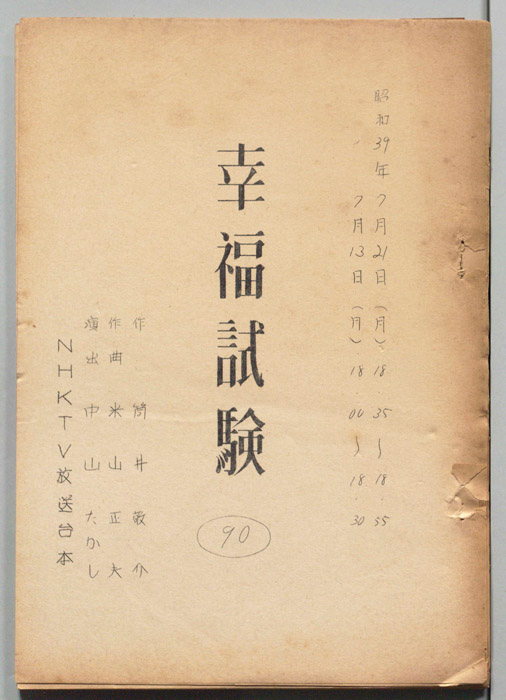 昭和39年7月21日(月)、18.35〜18.55
〃 7月13日(月)、18.00〜18.30
幸福試験
90
作 筒井敬介
作曲 米山正夫
演出 中山たかし
NHKTV放送台本